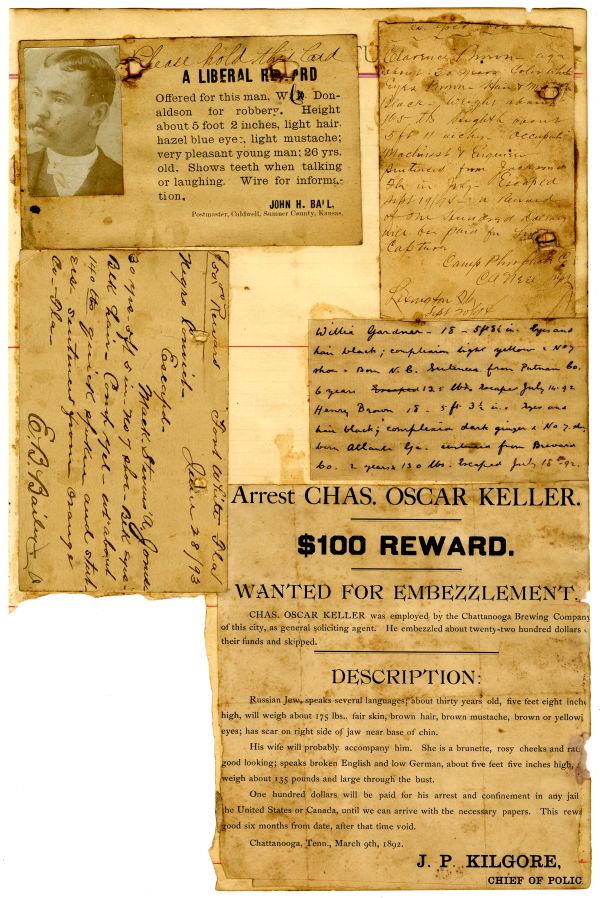 Please hold this Card
A LIBERAL REWARD
Offered for this man, Wm Don-
aldson for robbery. Height
about 5 foot 2 inches, light hair.
hazel blue eyes, light mustache;
very pleasant young man; 26 yrs.
old. Shows teeth when talking
or laughing. Wire for informa-
tion.
JOHN H. BAIL,
Postmaster, Caldwell, Sumner County, Kansas.
Clarence Brown age
about 20 years Color
eyes Brown Hair
Black - Weight about
165 lb height about
5 ft 11 inches. Occupation
Machinist & Engineer
Sentenced from Jackson
Fla in Escaped
Sept 19/93 - a Reward
of One Hundred Dollars
will be paid for his
Capture
Camp Phosphate Co
Sept 20/
$50.00 Reward Fort White Fla
June 28/93
Negro Convict Escaped.
Mack Stevens
30 yrs. 5 ft 8 in. No 7 shoe - Blk eyes -
Blk hair - Comp Yel - wt about
140 lbs quick spoken and
sentenced from Orange
Co - Fla -
E. B. Bailey
Willie Gardner - 18 - 5ft 3½ in. Eyes and
hair black; complexion light yellow & No 7
shoe. Born N. C. Sentence from Putnam Co.
6 years Escaped 125 lbs. Escaped July 14-92
Henry Brown 18 - 5 ft 3½ in. Eyes and
hair black; complexion dark ginger & No 7. shoe
born Atlanta Ga. sentence from Brevard
Co. 2 years & 130 lbs. Escaped July 18th 92.
Arrest CHAS. OSCAR KELLER.
$100 REWARD.
WANTED FOR EMBEZZLEMENT.
CHAS. OSCAR KELLER was employed by the Chattanooga Brewing Company
of this city, as general soliciting agent. He embezzled about twenty-two hundred dollars
their funds and skipped.
DESCRIPTION:
Russian Jew, speaks several languages; about thirty years old, five feet eight inche
high, will weigh about 175 lbs., fair skin, brown hair, brown mustache, brown or yellowi
eyes; has scar on right side of jaw near base of chin.
His wife will probably accompany him. She is a brunette, rosy cheeks and rat
good looking; speaks broken English and low German, about five feet five inches high,
weigh about 135 pounds and large through the bust.
One hundred dollars will be paid for his arrest and confinement in any jail
the United States or Canada, until we can arrive with the necessary papers. This rewa
good six months from date, after that time void.
Chattanooga, Tenn., March 9th, 1892.
J. P. KILGORE,
CHIEF OF POLIC